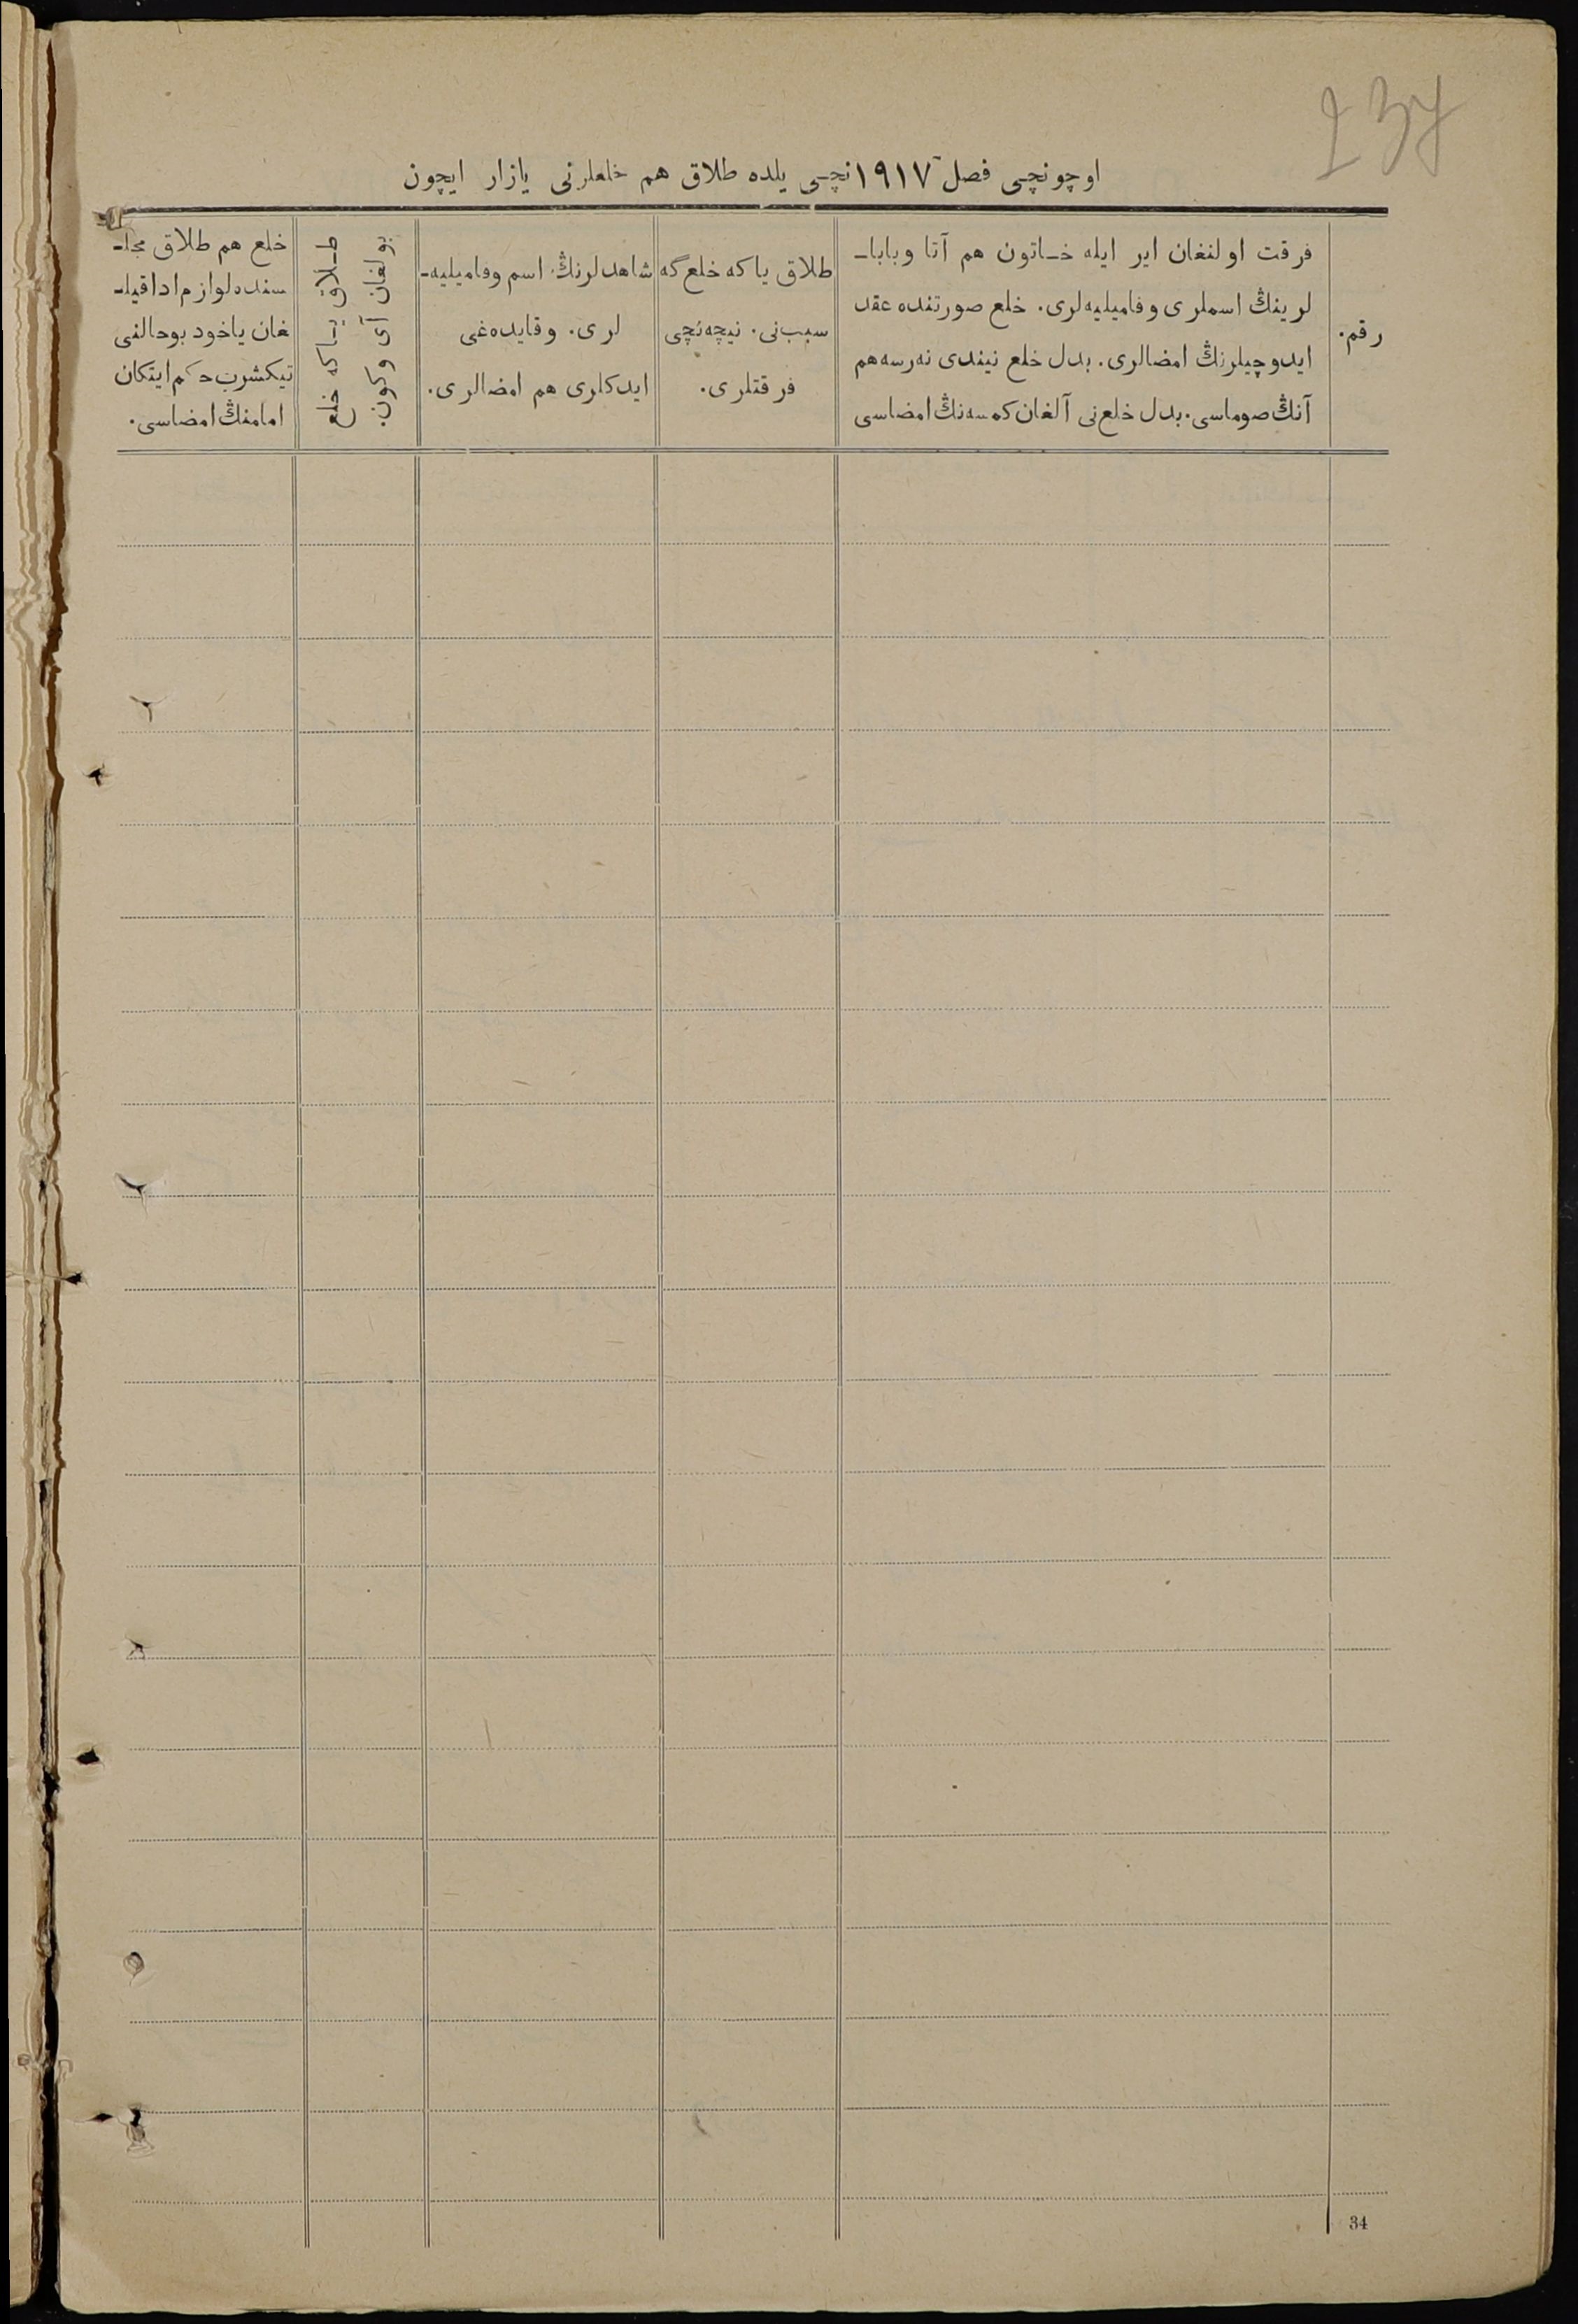 237
اوچونچی فصل ١٩١٧نچی یلده طلاق هم خلعلرنی یازار ایچون
رقم.
فرقت اولنغان ایر ایله خاتون هم آتا وبابا-
لرینڭ اسملری وفامیلیه‌لری. خلع صورتنده عقد
ایدوچیلرنڭ امضالری. بدل خلع نیندی نه‌رسه هم
آنڭ صوماسی. بدل خلع‌نی آلغان کمسه‌نڭ امضاسی
طلاق یاکه خلع‌گه
سبب‌نی. نیچه‌نچی
فرقتلری.
شاهدلرنڭ اسم وفامیلیه-
لری. وقایده‌غی
ایدکلری هم امضالری.
طلاق یاکه خلع
بولغان آی وکون.
خلع هم طلاق مجل-
سنده لوازم ادا قیل-
غان یاخود بوحالنی
تیکشرب حکم ایتکان
امامنڭ امضاسی.
34